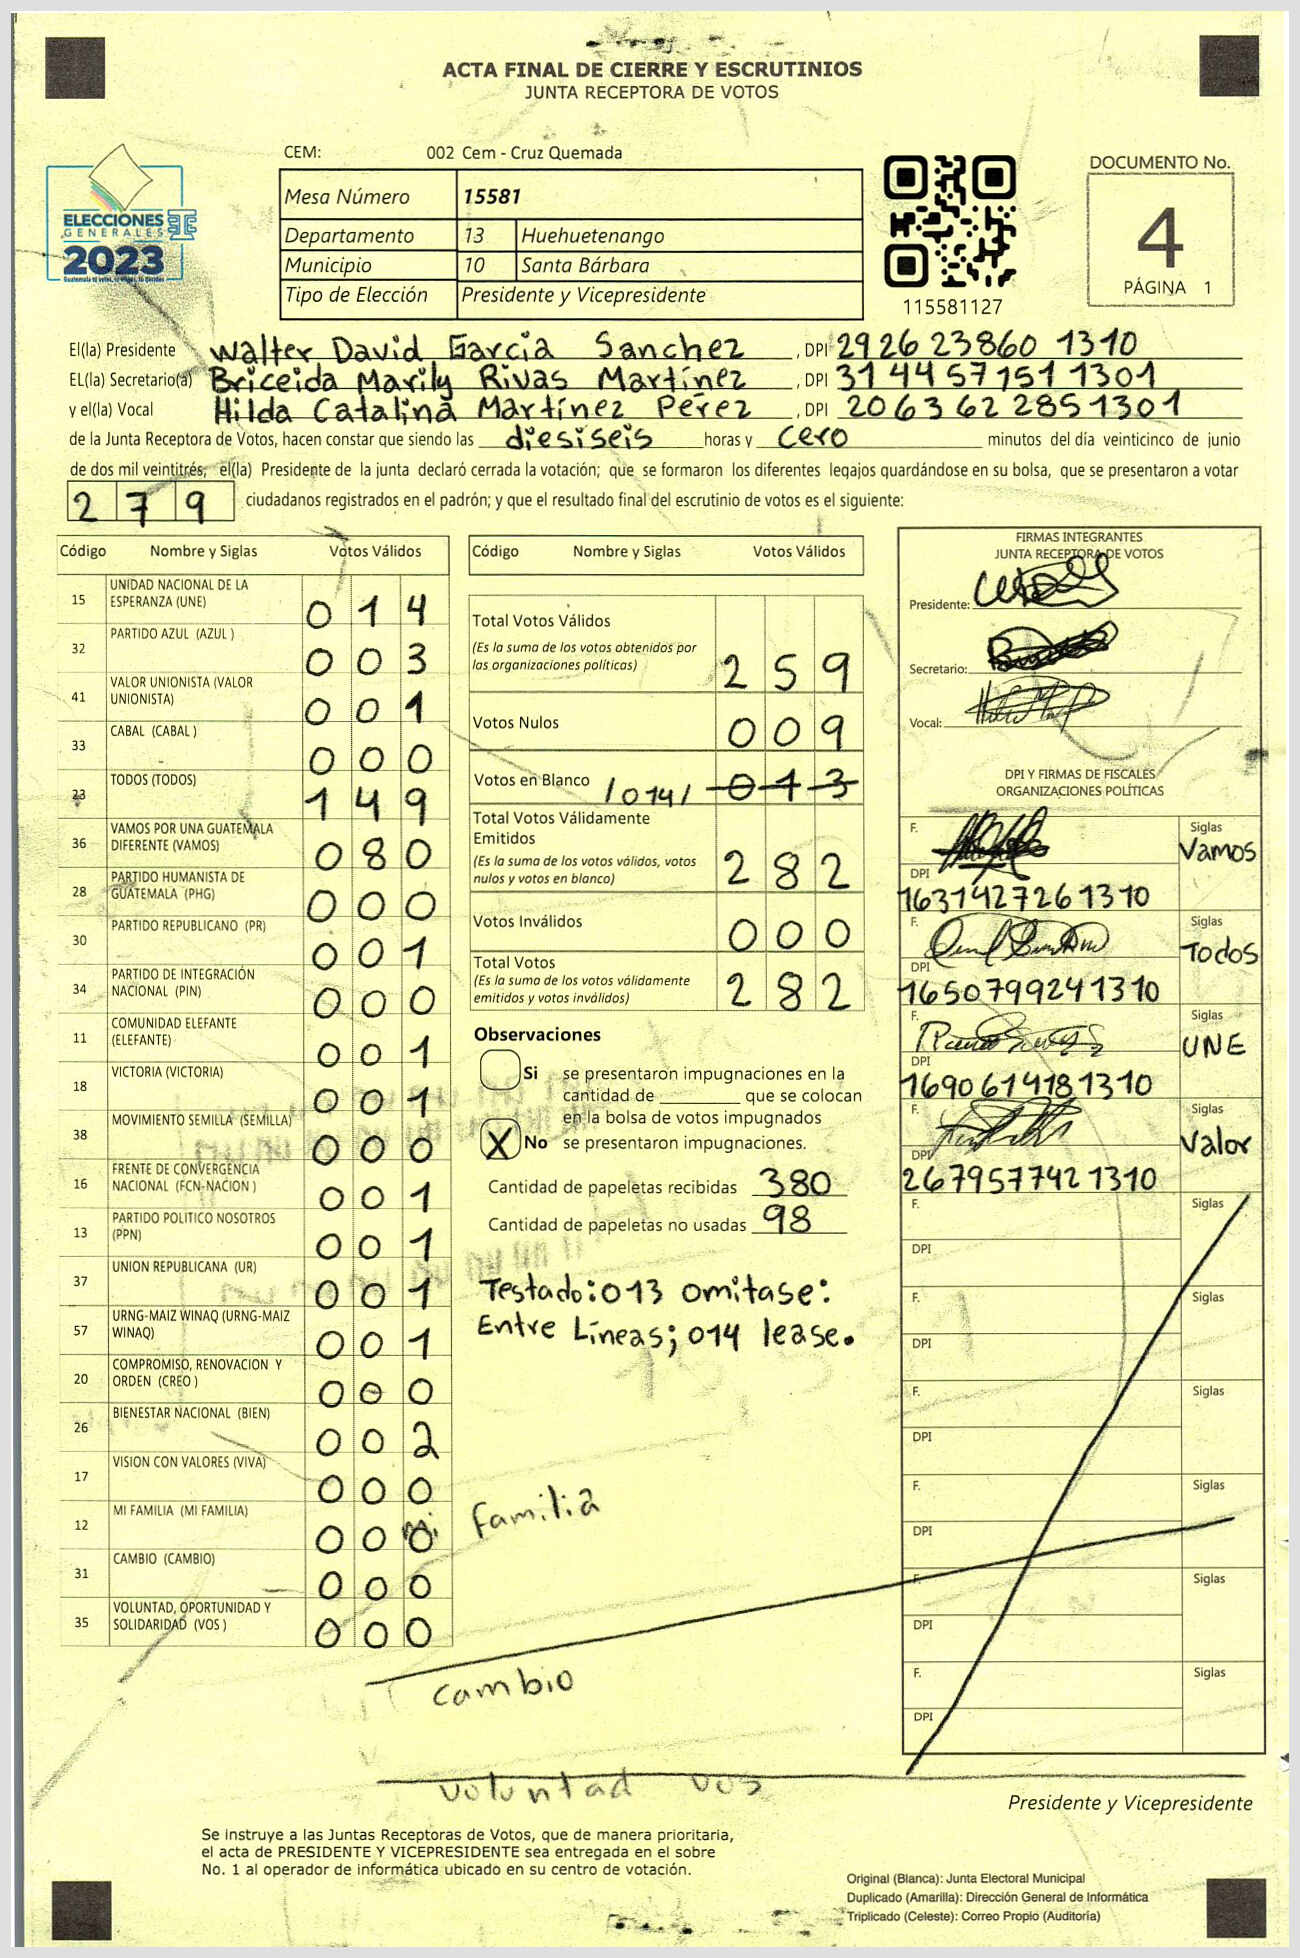 ACTA FINAL DE CIERRE Y ESCRUTINIOS
JUNTA RECEPTORA DE VOTOS
CEM: 002 Cem - Cruz Quemada
ELECCIONES
GENERALES
2023
Mesa Número 15581
Departamento 13 Huehuetenango
Municipio 10 Santa Bárbara
Tipo de Elección Presidente y Vicepresidente
115581127
DOCUMENTO No.
4
PÁGINA 1
El(la) Presidente Walter David Garcia Sanchez, DPI 2926 23860 1310
EL(la) Secretario(a) Briceida Marily Rivas Martínez, DPI 3144571511301
y el(la) Vocal Hilda Catalina Martínez Pérez, DPI 2063622851301
de la Junta Receptora de Votos, hacen constar que siendo las diesiseis horas y cero minutos del día veinticinco de junio
de dos mil veintitrés; el(la) Presidente de la junta declaró cerrada la votación; que se formaron los diferentes legajos guardándose en su bolsa, que se presentaron a votar
279 ciudadanos registrados en el padrón; y que el resultado final del escrutinio de votos es el siguiente:
Código Nombre y Siglas Votos Válidos
15 UNIDAD NACIONAL DE LA ESPERANZA (UNE) 014
32 PARTIDO AZUL (AZUL ) 003
41 VALOR UNIONISTA (VALOR UNIONISTA) 001
33 CABAL (CABAL ) 000
23 TODOS (TODOS) 149
36 VAMOS POR UNA GUATEMALA DIFERENTE (VAMOS) 080
28 PARTIDO HUMANISTA DE GUATEMALA (PHG) 000
30 PARTIDO REPUBLICANO (PR) 001
34 PARTIDO DE INTEGRACIÓN NACIONAL (PIN) 000
11 COMUNIDAD ELEFANTE (ELEFANTE) 001
18 VICTORIA (VICTORIA) 001
38 MOVIMIENTO SEMILLA (SEMILLA) 000
16 FRENTE DE CONVERGENCIA NACIONAL (FCN-NACION ) 001
13 PARTIDO POLITICO NOSOTROS (PPN) 001
37 UNION REPUBLICANA (UR) 001
57 URNG-MAIZ WINAQ (URNG-MAIZ WINAQ) 001
20 COMPROMISO, RENOVACION Y ORDEN (CREO ) 000
26 BIENESTAR NACIONAL (BIEN) 002
17 VISION CON VALORES (VIVA) 000
12 MI FAMILIA (MI FAMILIA) 000
31 CAMBIO (CAMBIO) 000
35 VOLUNTAD, OPORTUNIDAD Y SOLIDARIDAD (VOS ) 000
Código Nombre y Siglas Votos Válidos
Total Votos Válidos
(Es la suma de los votos obtenidos por
las organizaciones políticas) 259
Votos Nulos 009
Votos en Blanco /014/ 013
Total Votos Válidamente
Emitidos
(Es la suma de los votos válidos, votos
nulos y votos en blanco) 282
Votos Inválidos 000
Total Votos
(Es la suma de los votos válidamente
emitidos y votos inválidos) 282
Observaciones
Si se presentaron impugnaciones en la
cantidad de ________ que se colocan
en la bolsa de votos impugnados
X No se presentaron impugnaciones.
Cantidad de papeletas recibidas 380
Cantidad de papeletas no usadas 98
Testado: 013 omitase:
Entre Líneas; 014 lease.
mi familia
cambio
voluntad vos
FIRMAS INTEGRANTES
JUNTA RECEPTORA DE VOTOS
Presidente:
Secretario:
Vocal:
DPI Y FIRMAS DE FISCALES
ORGANIZACIONES POLÍTICAS
F. Siglas Vamos
DPI 1631427261310
F. Siglas Todos
DPI 1650799241310
F. Siglas UNE
DPI 1690614181310
F. Siglas Valor
DPI 2679577421310
F. Siglas
DPI
F. Siglas
DPI
F. Siglas
DPI
F. Siglas
DPI
F. Siglas
DPI
F. Siglas
DPI
Presidente y Vicepresidente
Se instruye a las Juntas Receptoras de Votos, que de manera prioritaria,
el acta de PRESIDENTE Y VICEPRESIDENTE sea entregada en el sobre
No. 1 al operador de informática ubicado en su centro de votación.
Original (Blanca): Junta Electoral Municipal
Duplicado (Amarilla): Dirección General de Informática
Triplicado (Celeste): Correo Propio (Auditoría)